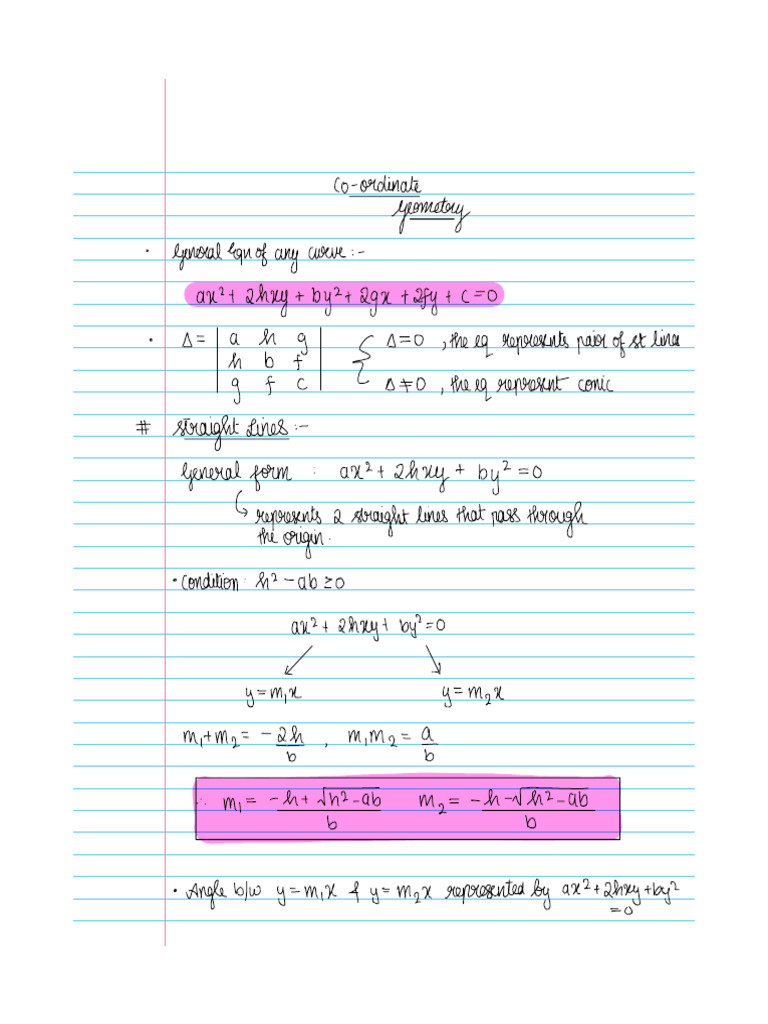 Co-ordinate
Geometry
· General Eqn of any curve :-
ax² + 2hxy + by² + 2gx + 2fy + c = 0
· Δ = | a h g | { Δ=0 , the eq represents pair of st lines
h b f
g f c | Δ≠0 , the eq represent conic
# Straight Lines :-
General form : ax² + 2hxy + by² = 0
↳ represents 2 straight lines that pass through
the origin.
· Condition : h² - ab ≥ 0
ax² + 2hxy + by² = 0
y = m₁x y = m₂x
m₁+m₂ = -2h/b , m₁m₂ = a/b
∴ m₁ = -h+√h²-ab/b m₂ = -h-√h²-ab/b
· Angle b/w y = m₁x & y = m₂x represented by ax²+2hxy+by²
=0